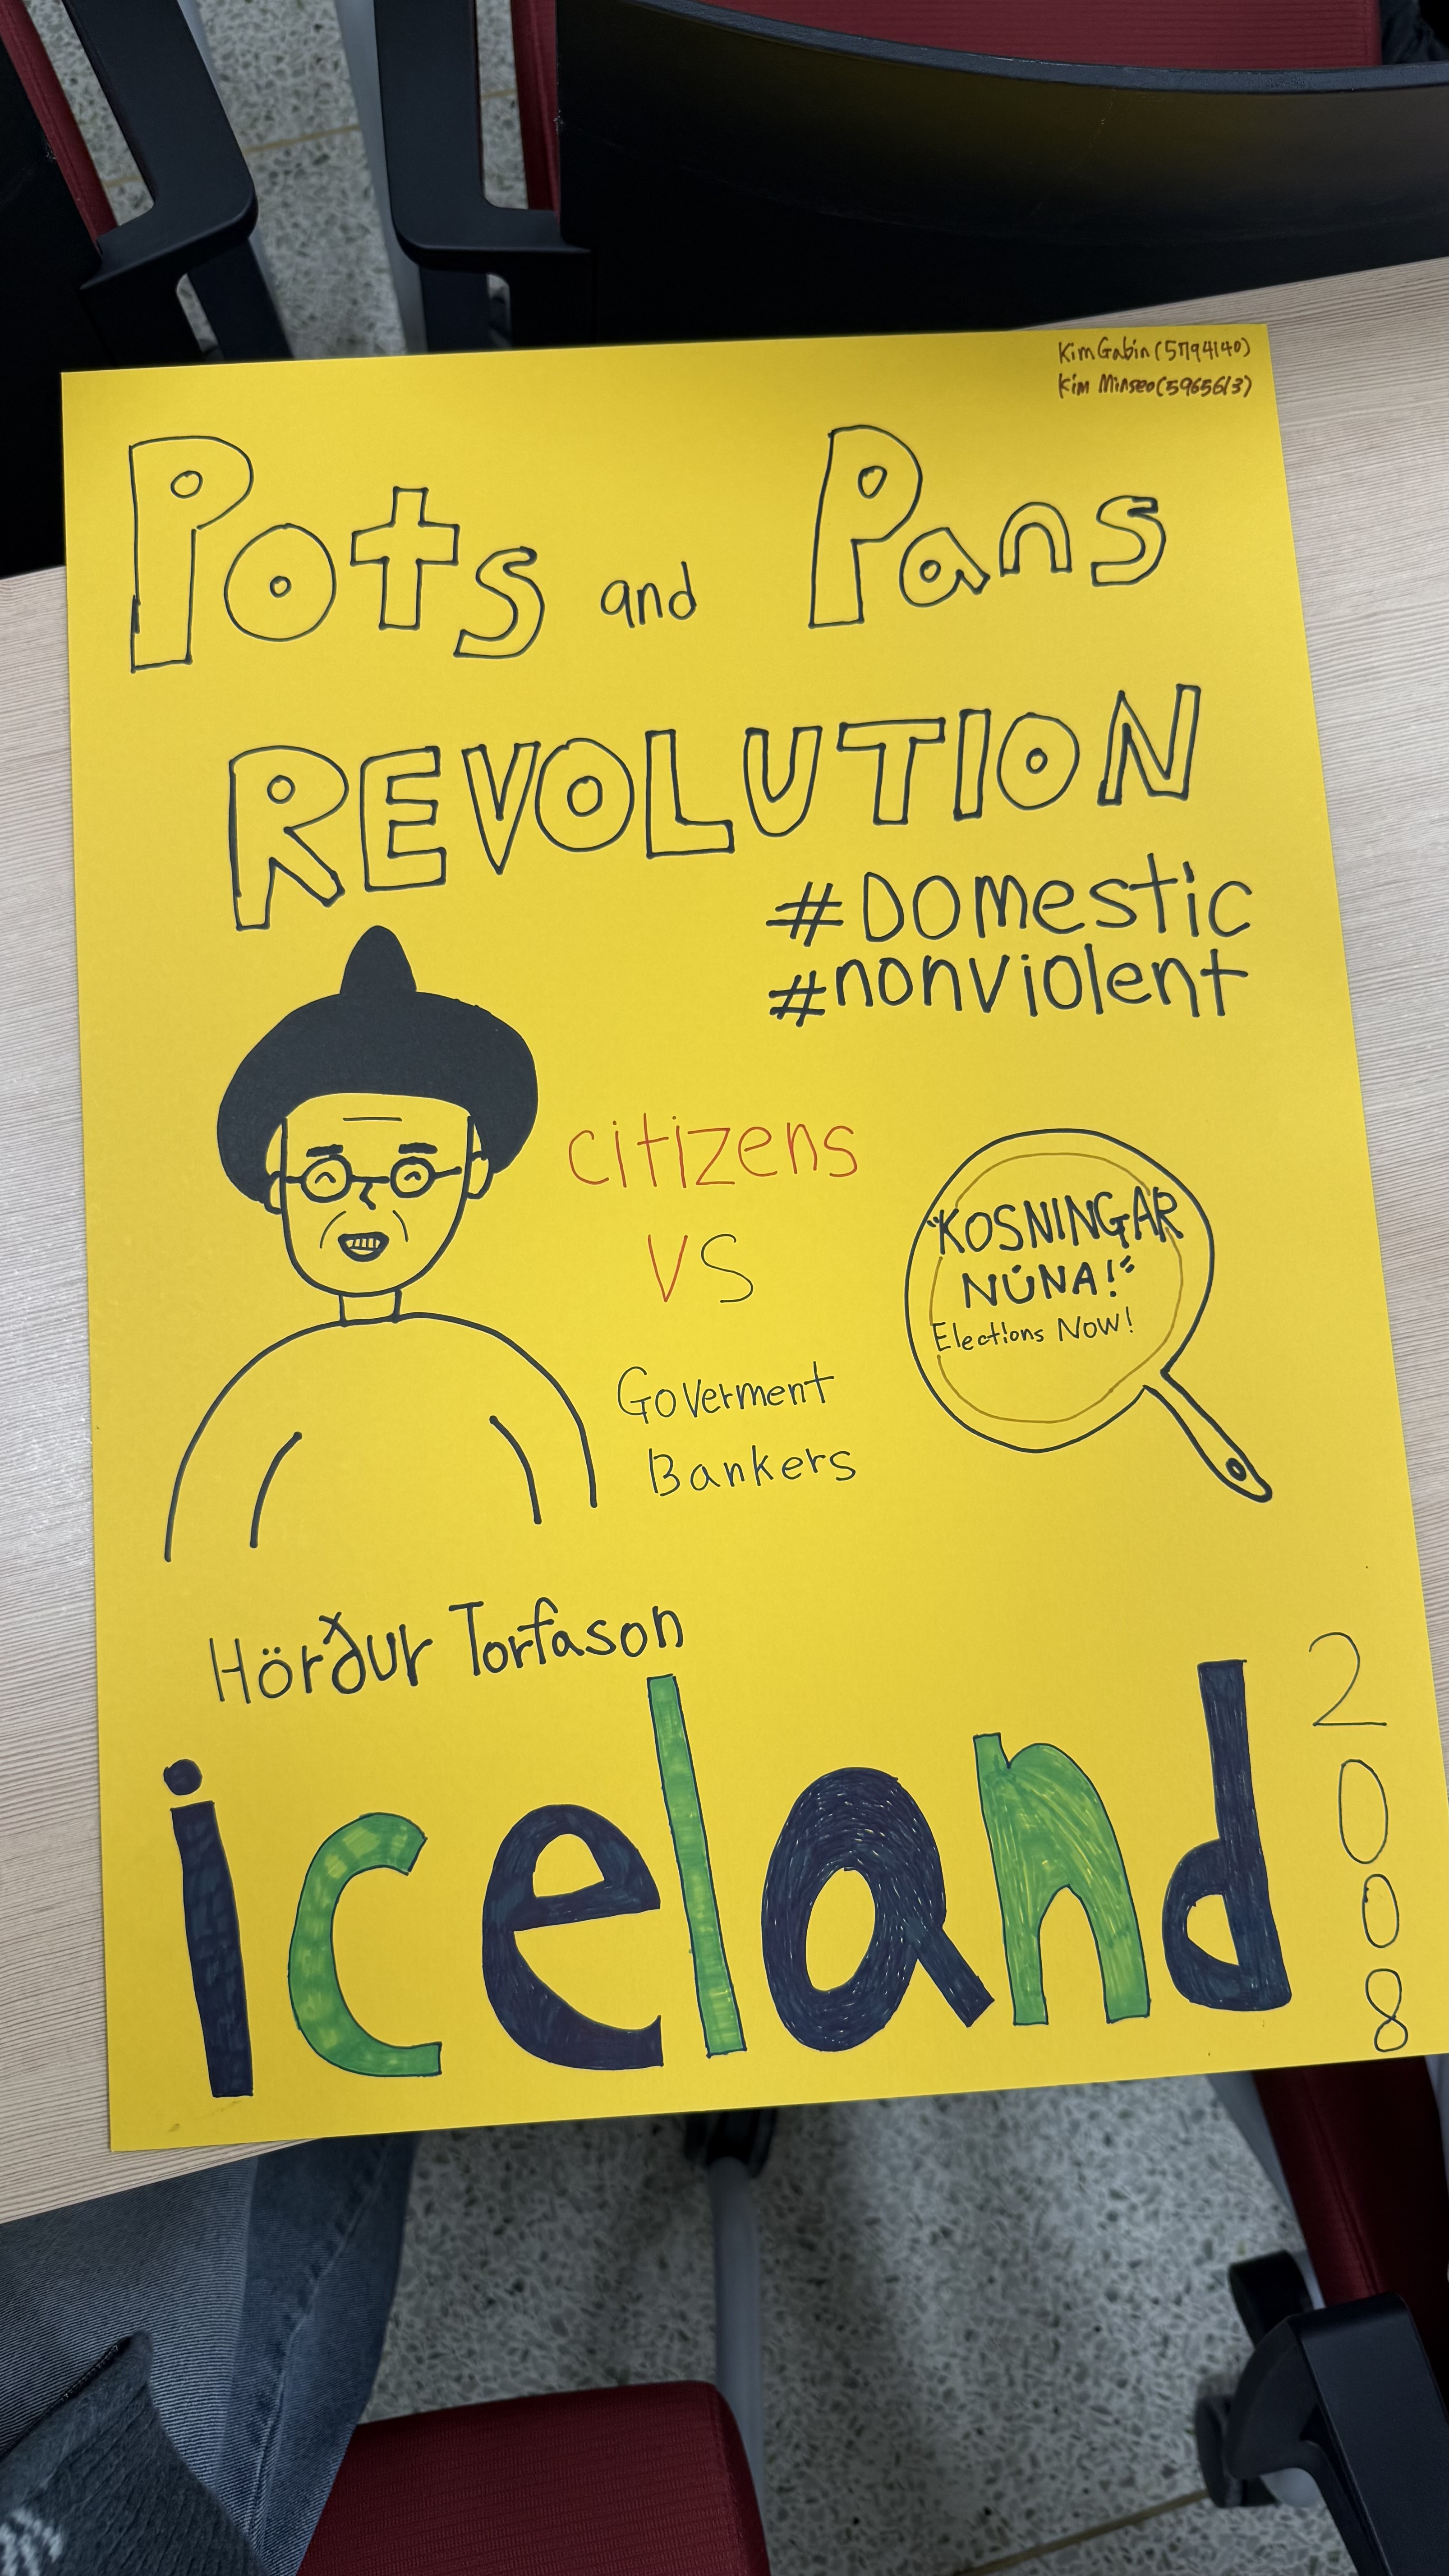 Kim Gabin (5794140)
Kim Minseo (5965613)
Pots and Pans
REVOLUTION
#Domestic
#nonviolent
citizens
VS
Goverment
Bankers
"KOSNINGAR
NÚNA!"
Elections Now!
Hörður Torfason
iceland
2008